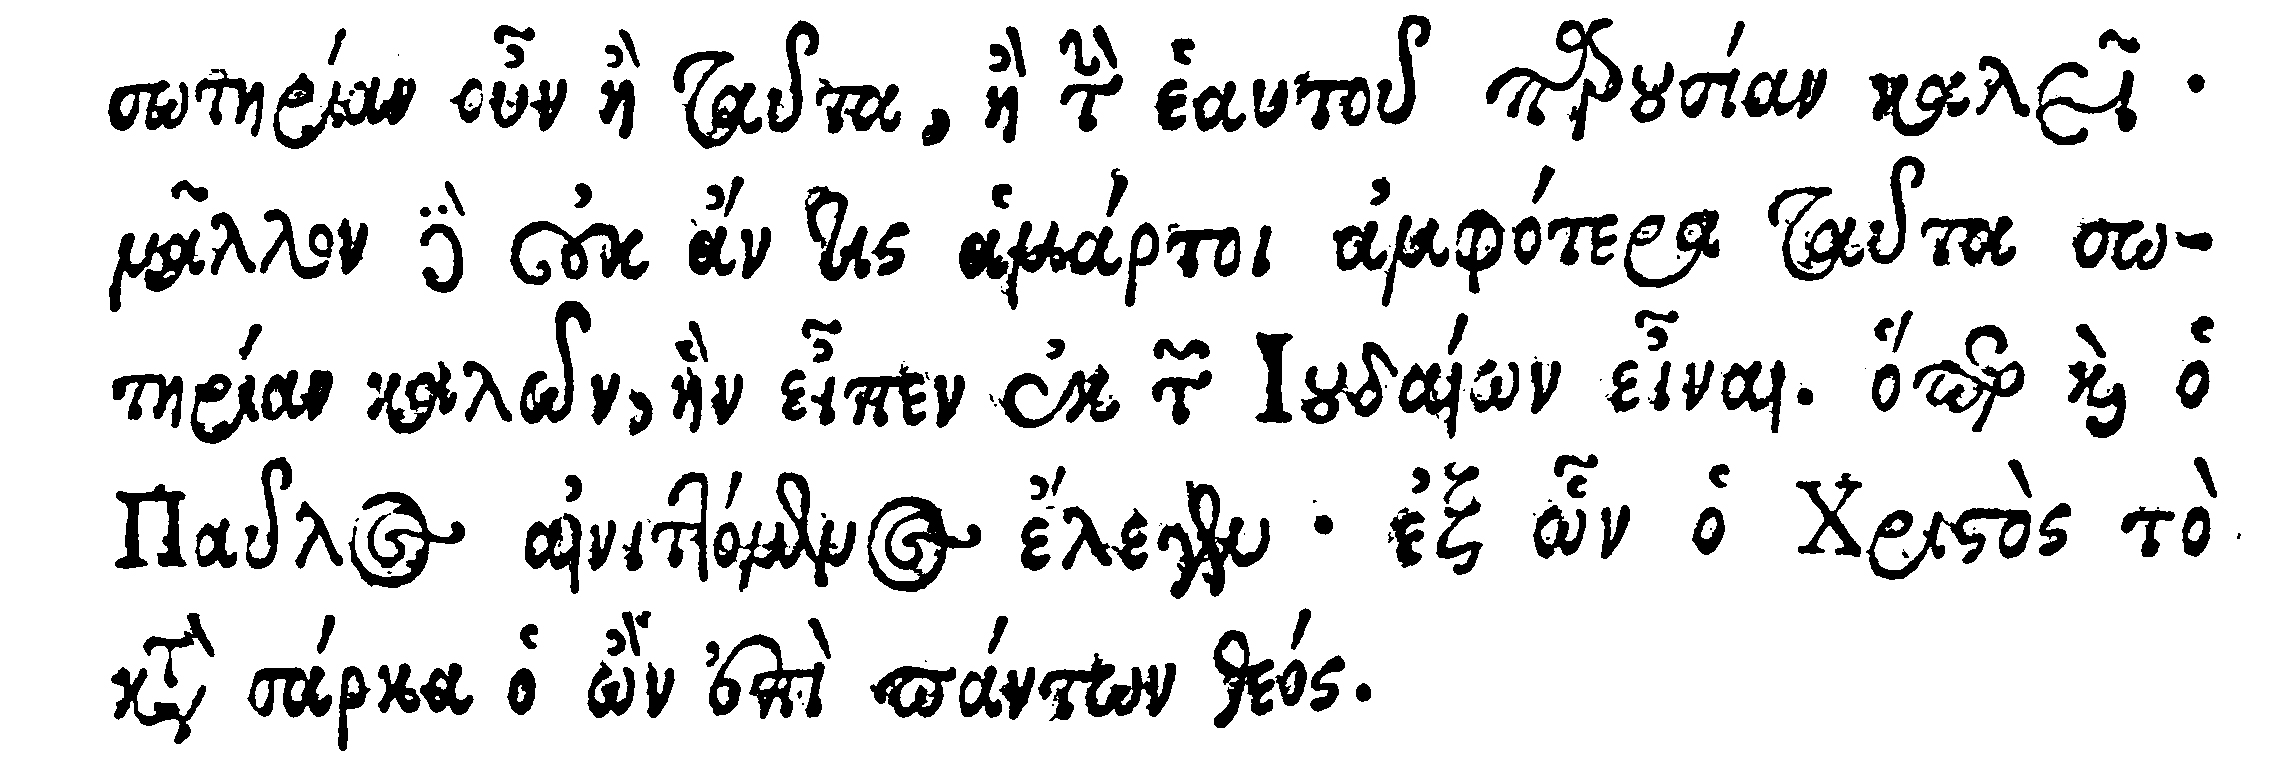 σωτηρίαν οὖν ἢ ταῦτα, ἢ τὴν ἑαυτοῦ παρουσίαν καλεῖ·
μᾶλλον δὲ οὐκ ἄν τις ἁμάρτοι ἀμφότερα ταῦτα σω-
τηρίαν καλῶν, ἣν εἶπεν ἐκ τῶν Ἰουδαίων εἶναι. ὅπερ καὶ ὁ
Παῦλος αἰνιττόμενος ἔλεγεν· ἐξ ὧν ὁ Χριστὸς τὸ
κατὰ σάρκα ὁ ὢν ἐπὶ πάντων θεός.